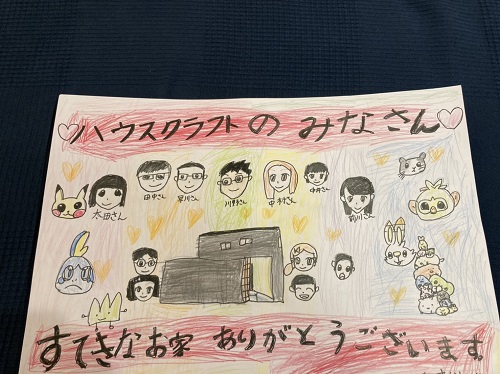 ハウスクラフトの みなさん
太田さん 田中さん 早川さん 川野さん 中村さん 中井さん 前川さん
すてきなお家 ありがとうございます